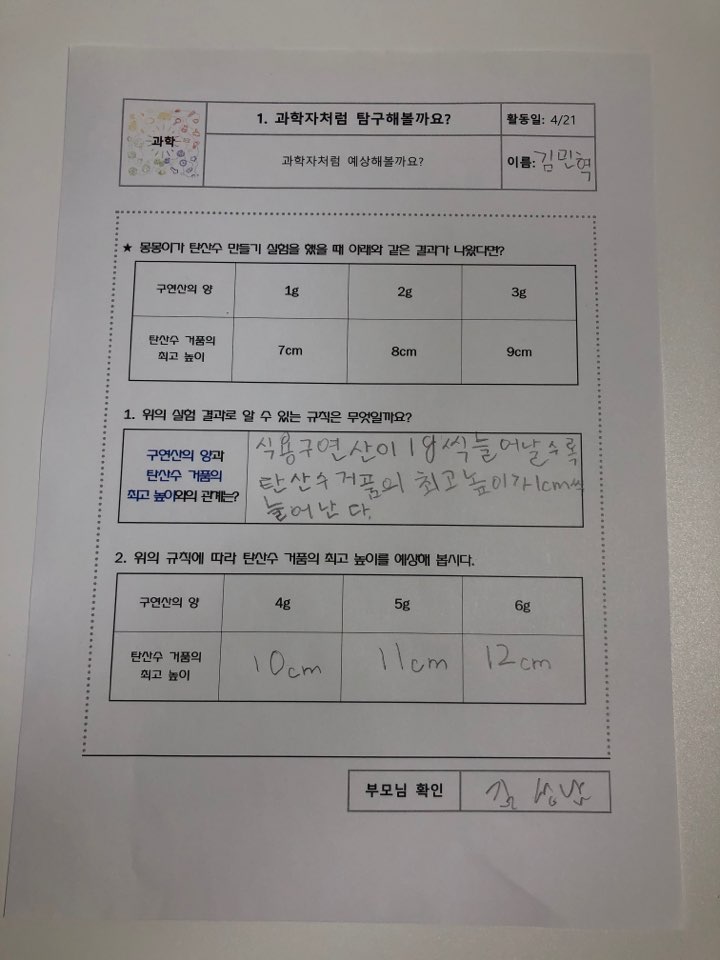 과학
1. 과학자처럼 탐구해볼까요?
활동일: 4/21
과학자처럼 예상해볼까요?
이름: 김민혁
★ 몽몽이가 탄산수 만들기 실험을 했을 때 아래와 같은 결과가 나왔다면?
구연산의 양 1g 2g 3g
탄산수 거품의
최고 높이
7cm 8cm 9cm
1. 위의 실험 결과로 알 수 있는 규칙은 무엇일까요?
구연산의 양과
탄산수 거품의
최고 높이와의 관계는?
식용구연산이 1g씩 늘어날수록
탄산수거품의 최고높이가 1cm씩
늘어난다.
2. 위의 규칙에 따라 탄산수 거품의 최고 높이를 예상해 봅시다.
구연산의 양 4g 5g 6g
탄산수 거품의
최고 높이
10cm 11cm 12cm
부모님 확인